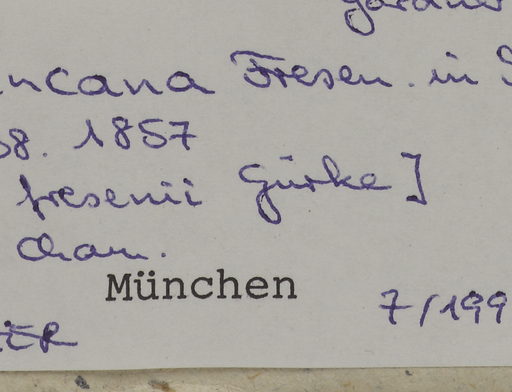 Gardner
incana Fresen. in S
58. 1857
fresenii Gürke]
Cham.
München
7/199
ER